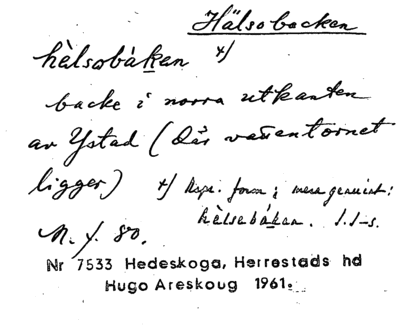 Hälsobacken
hèlsobàḵen x/
backe i norra utkanten
av Ystad (där vattentornet
ligger) x/ Uspr. form i mera genuint:
hèlsebáḵen. S.I-s.
M. y. 80.
Nr 7533 Hedeskoga, Herrestads hd
Hugo Areskoug 1961.